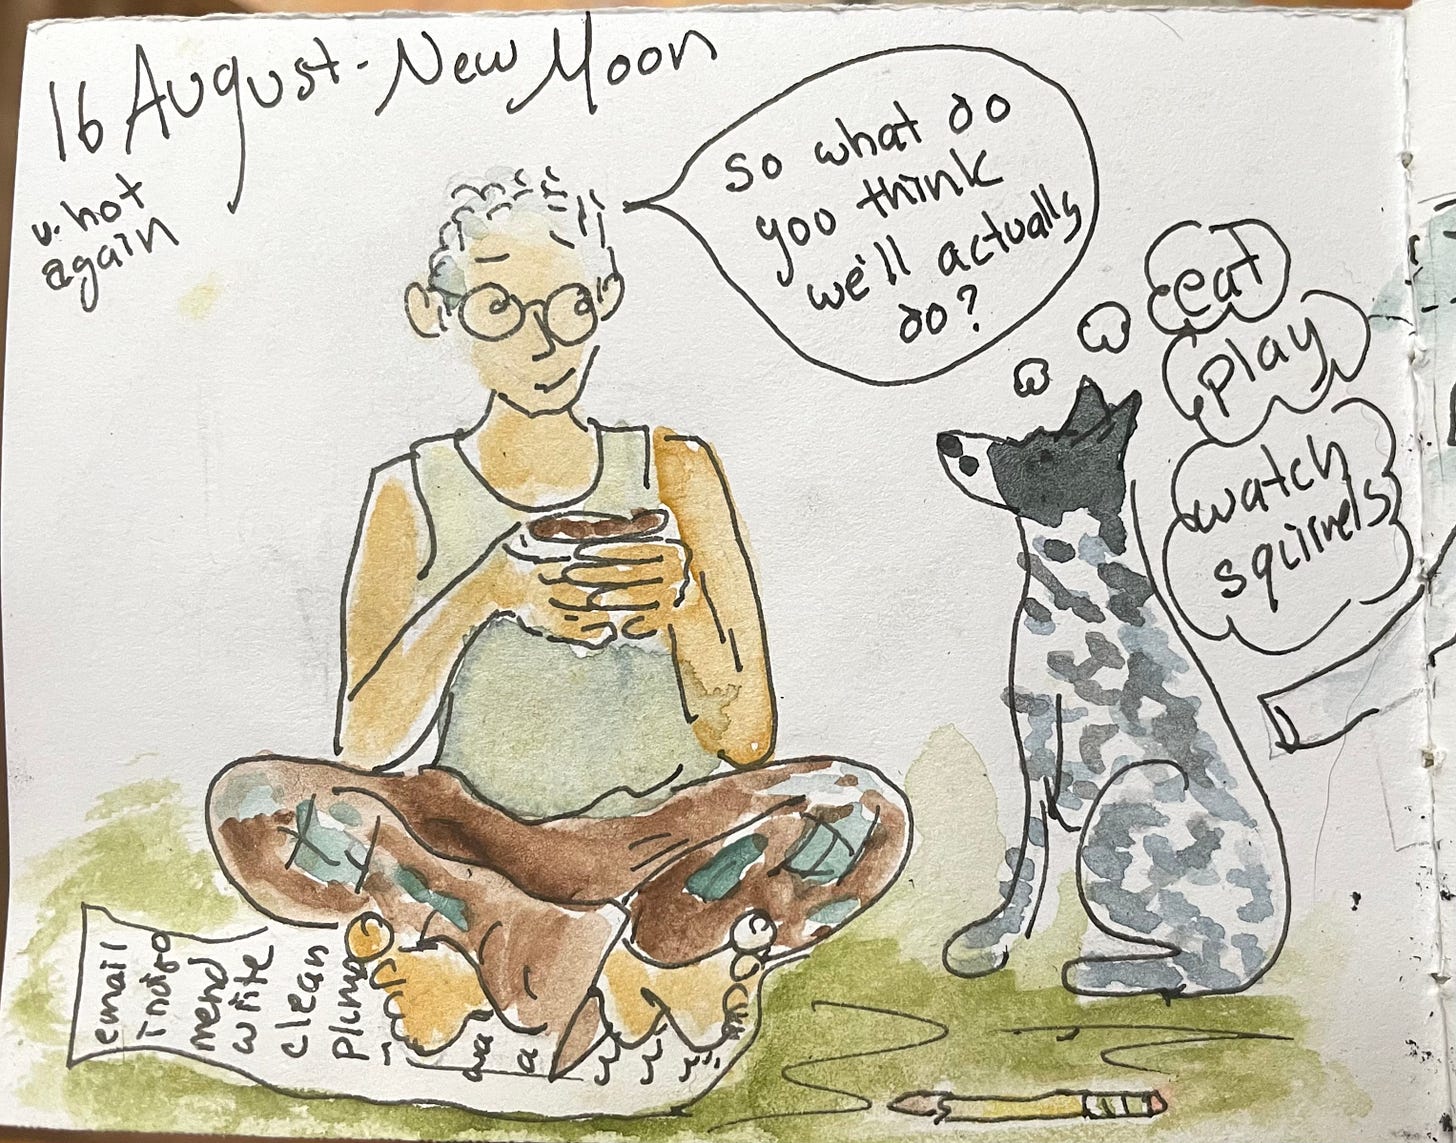 16 August - New Moon
v. hot
again
So what do
you think
we'll actually
do?
eat
play
watch
squirrels
email
indigo
mend
write
clean